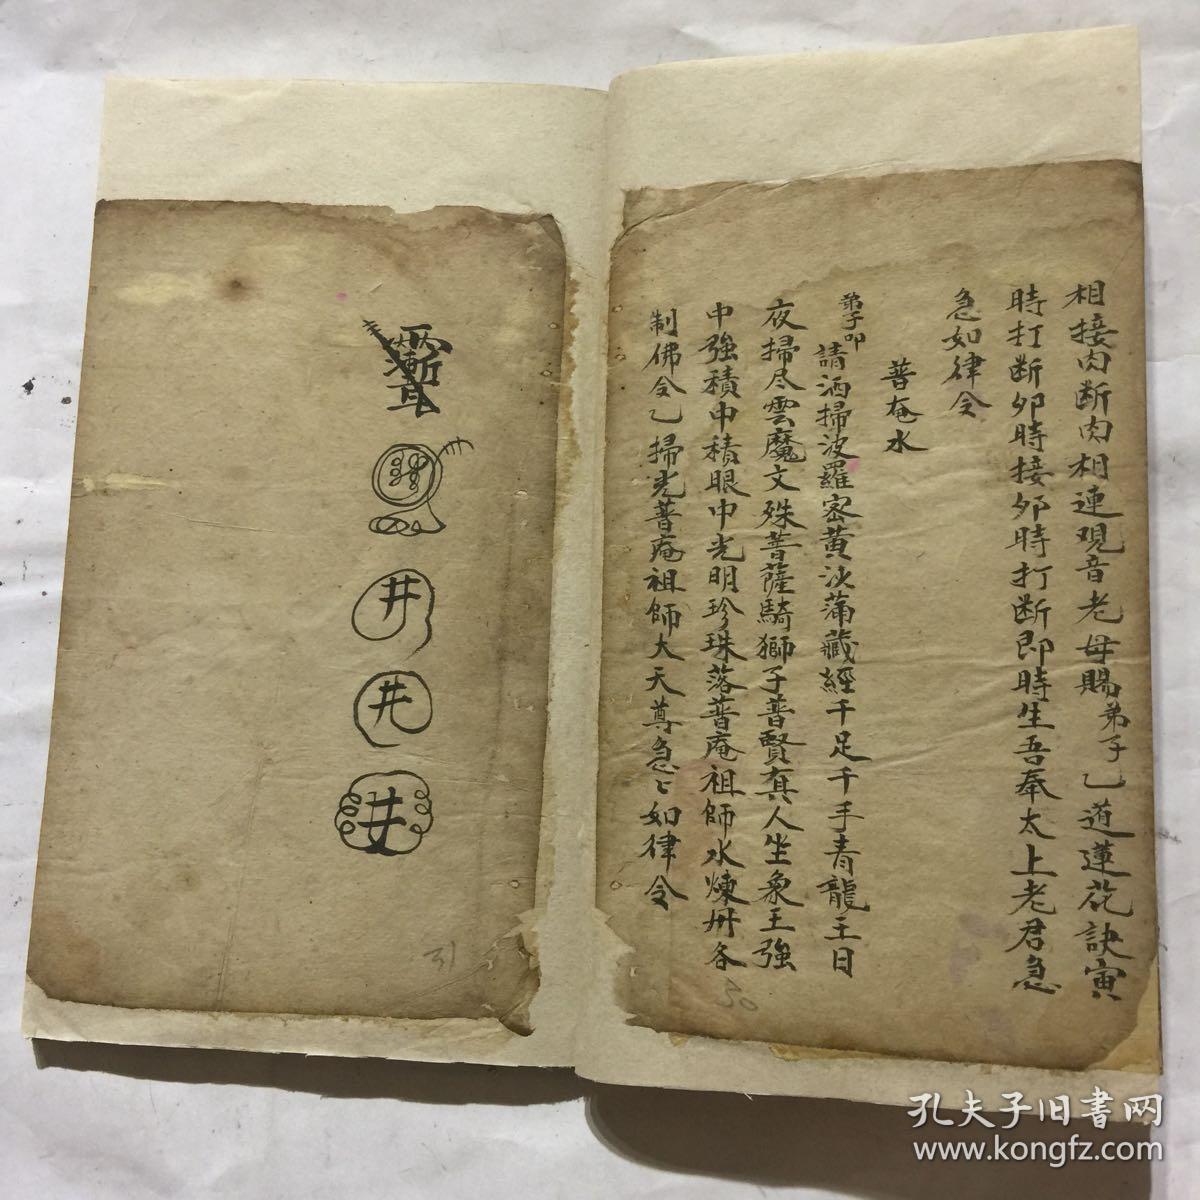 相接肉断肉相連观音老母賜弟子乙道蓮花訣寅
時打断夘時接夘時打断即時生吾奉太上老君急
急如律令
普奄水
弟子叩請洒掃波羅密黄沙蒲藏經千足千手青龍王日
夜掃尽雲魔文殊菩薩騎獅子普賢真人坐象王強
中強積中積眼中光明珍珠落普庵祖師水煉丹各
制佛令乙掃光普庵祖師大天尊急〻如律令
50
井
井
31
孔夫子旧书网
www.kongfz.com